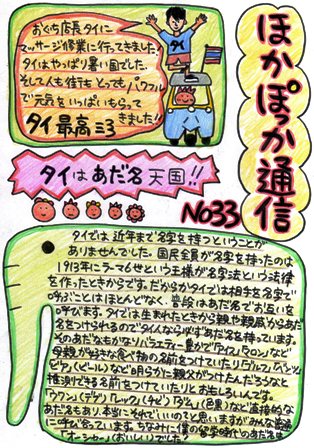 ほかぽっか通信
No33
おぐち店長タイに
マッサージ修業に行ってきました!
タイはやっぱり暑い国でした。
そして人も街もとってもパワフル
で元気をいっぱいもらって
きました!!
タイ最高ミ3
タイ
タイはあだ名天国!!
タイでは近年まで名字を持つということが
ありませんでした。国民全員が名字を持ったのは
1913年にラーマ6せという王様が名字法という法律
を作ったときからです。だからかタイでは相手を名字で
呼ぶことはほとんどなく、普段はあだ名でお互いを
呼びます。タイでは生まれたときから親や親戚からあだ
名をつけられるのでタイ人なら必ずあだ名を持っています。
そのあだなもかなりバラエティー豊かで「タイプ」「マロン」など
母親が好きな食べ物の名前をつけていたり
「ビア」(ビール)など明らかに親父がつけたんだろうなと
推測できる名前をつけていたりとおもしろいんです。
「ウワン」(デブ)「レック」(チビ)「ダム」(色黒)など直接的な
あだ名もあり、本当にそれでいいの?と思いますがみんな普通
に呼び合っています。ちなみに僕の留学時代のあだ名は
(おいしい)でした!